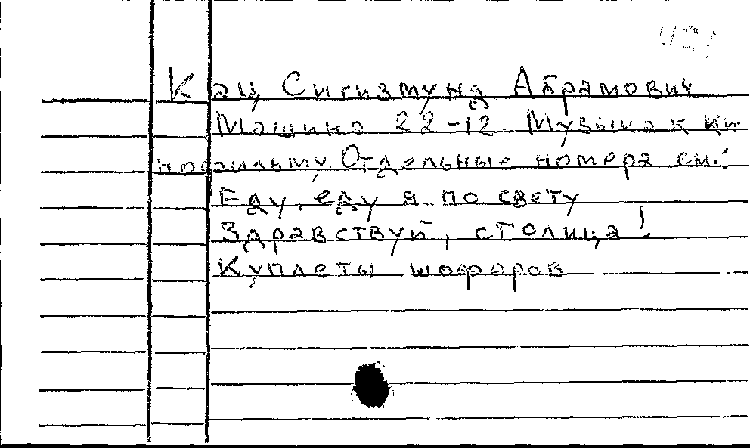 Кац Сигизмунд Абрамович
Машина 22-12 Музыка к ки-
нофильму. Отдельные номера см.:
Еду, еду я по свету
Здравствуй, столица!
Куплеты шоферов